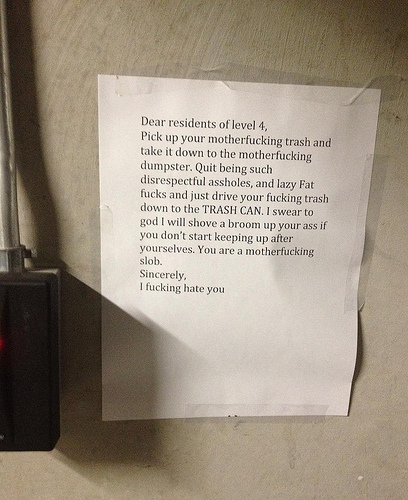 Dear residents of level 4,
Pick up your motherfucking trash and
take it down to the motherfucking
dumpster. Quit being such
disrespectful assholes, and lazy Fat
fucks and just drive your fucking trash
down to the TRASH CAN. I swear to
god I will shove a broom up your ass if
you don't start keeping up after
yourselves. You are a motherfucking
slob.
Sincerely,
I fucking hate you